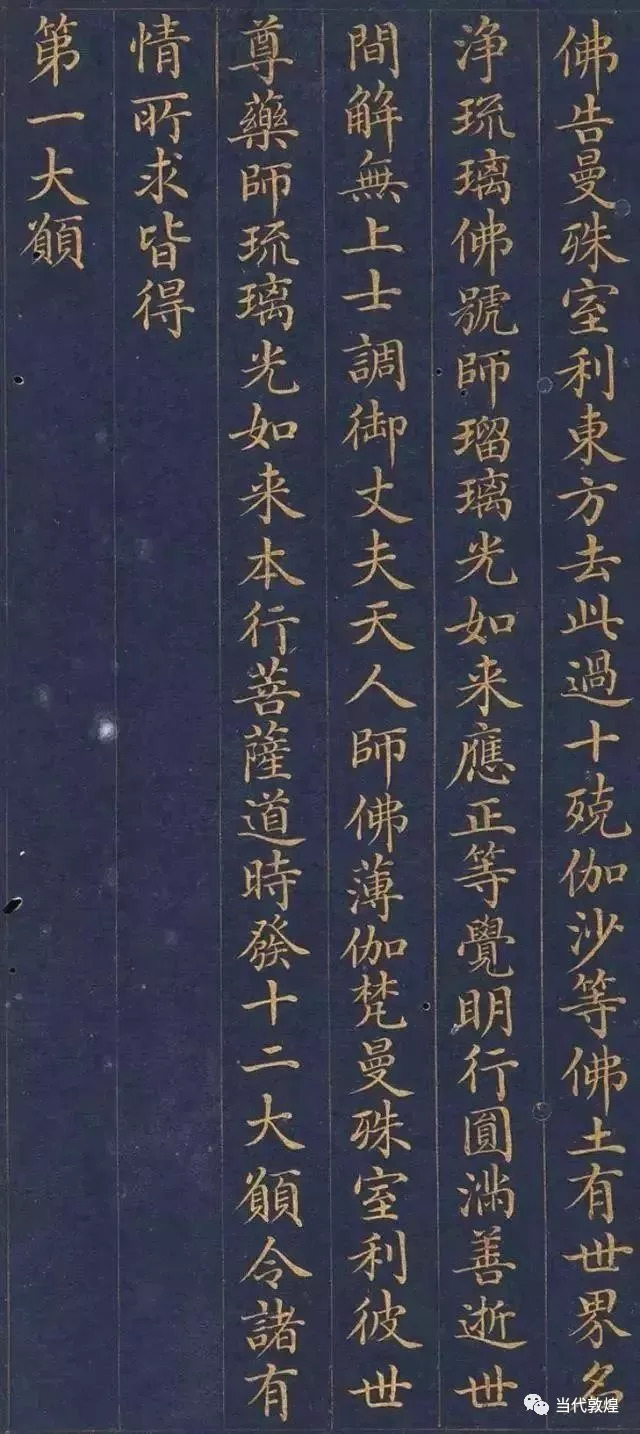 佛告曼殊室利東方去此過十殑伽沙等佛土有世界名
净琉璃佛號師瑠璃光如来應正等覺明行圓滿善逝世
間解無上士調御丈夫天人師佛薄伽梵曼殊室利彼世
尊藥師琉璃光如来本行菩薩道時發十二大願令諸有
情所求皆得
第一大願
当代敦煌